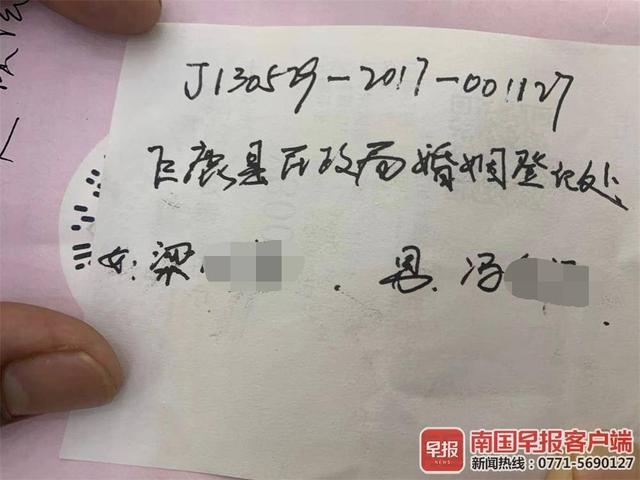 J130529-2017-001127
巨鹿县民政局婚姻登记处
女:梁 . 男. 冯
早报
NEWS
南国早报客户端
新闻热线:0771-5690127